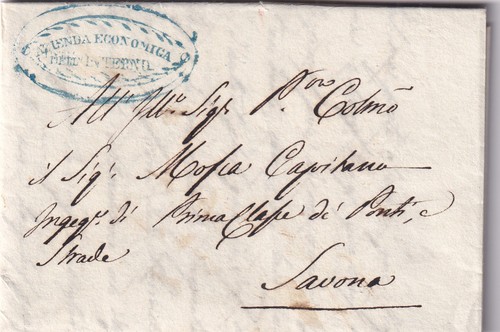 AZIENDA ECONOMICA
DELL' INTERNO
All' Ill.mo Sig.r P.ron Col.mo
il Sig.r Mosca Capitano
Ingeg.re di Prima Classe di Ponti, e
Strade
Savona